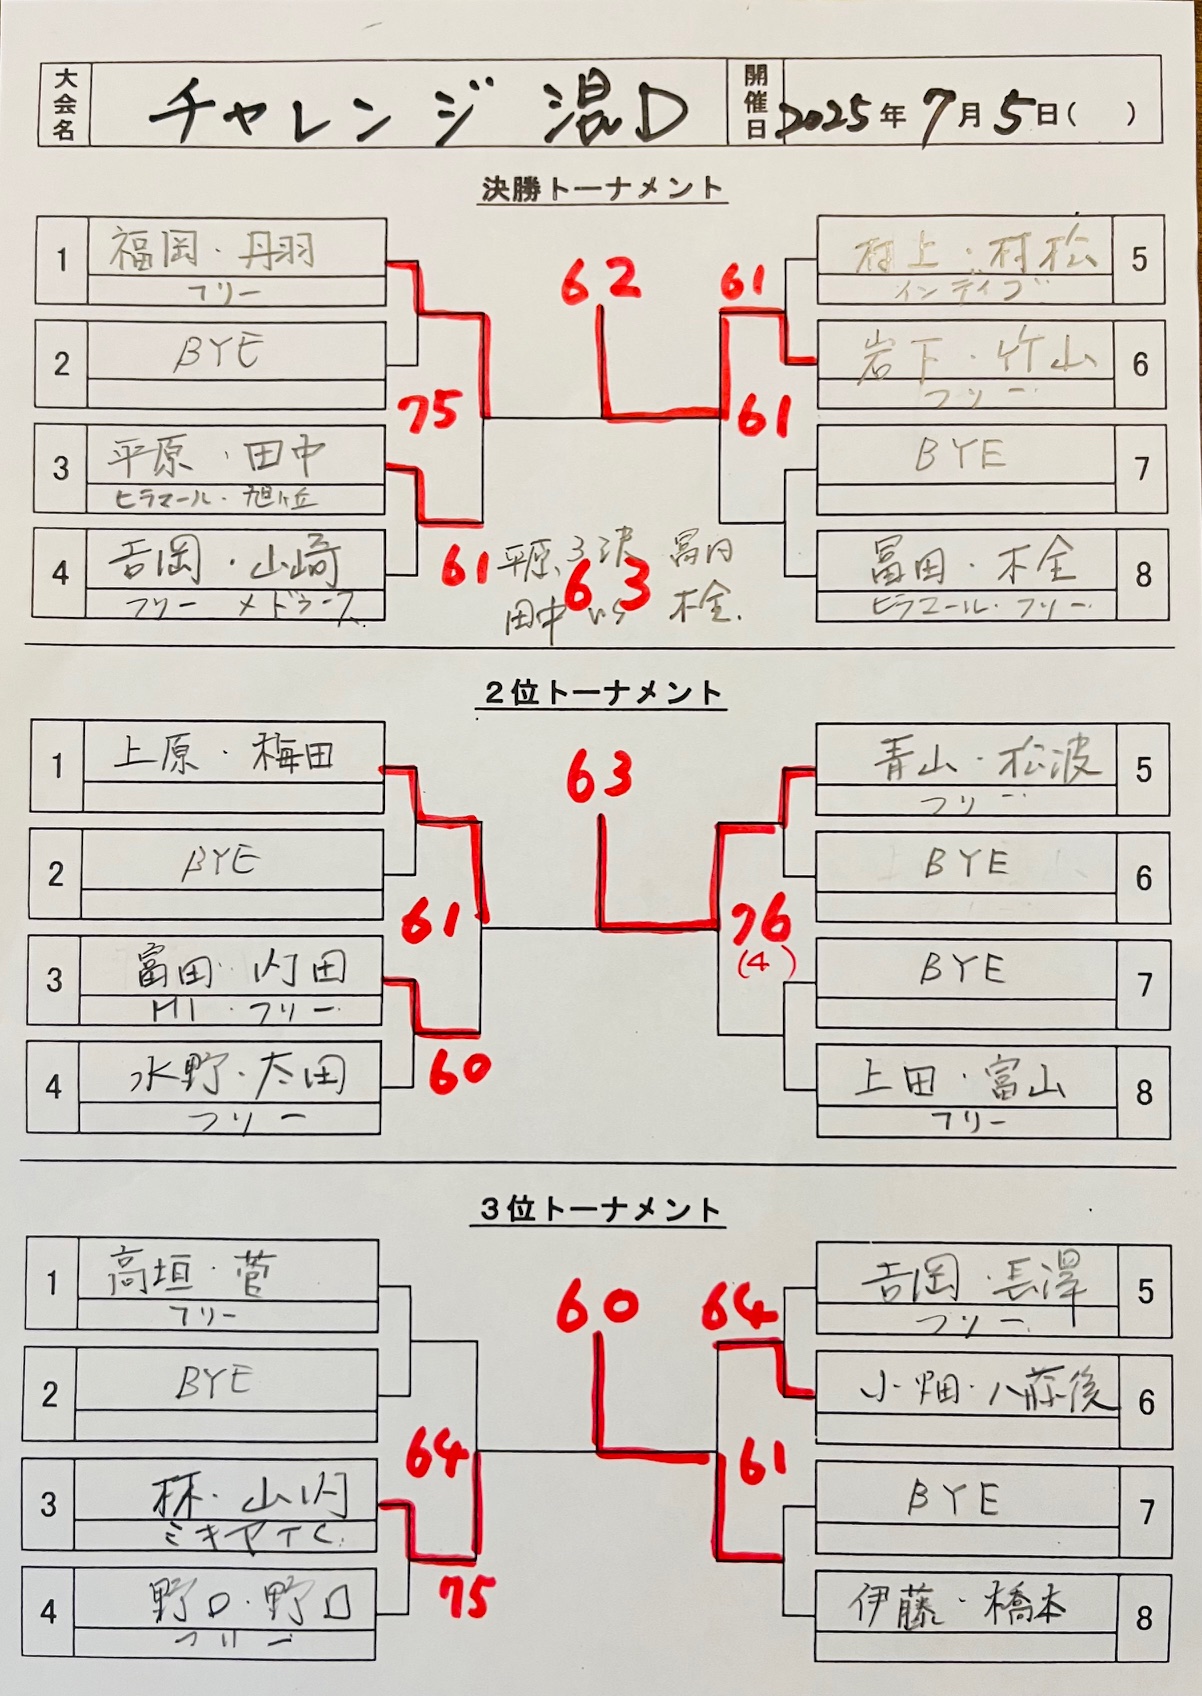 大会名 チャレンジ 混D 開催日 2025年7月5日( )
決勝トーナメント
1 福岡・丹羽
フリー
2 BYE
3 平原・田中
ヒラマール・旭ヶ丘
4 吉岡・山崎
フリー メドゥース
75
61
62
61
61
5 村上・村松
インディブ
6 岩下・竹山
フリー
7 BYE
8 冨田・木全
ヒラマール・フリー
平原 3決 冨田
63
田中 vs 木全
2位トーナメント
1 上原・梅田
2 BYE
3 富田・内田
H1・フリー
4 水野・太田
フリー
61
60
63
76
(4)
5 青山・松波
フリー
6 BYE
7 BYE
8 上田・富山
フリー
3位トーナメント
1 高垣・菅
フリー
2 BYE
3 林・山内
ミキヤTC.
4 野口・野口
フリー
64
75
60
64
61
5 吉岡・長澤
フリー
6 小畑・八藤後
7 BYE
8 伊藤・橋本